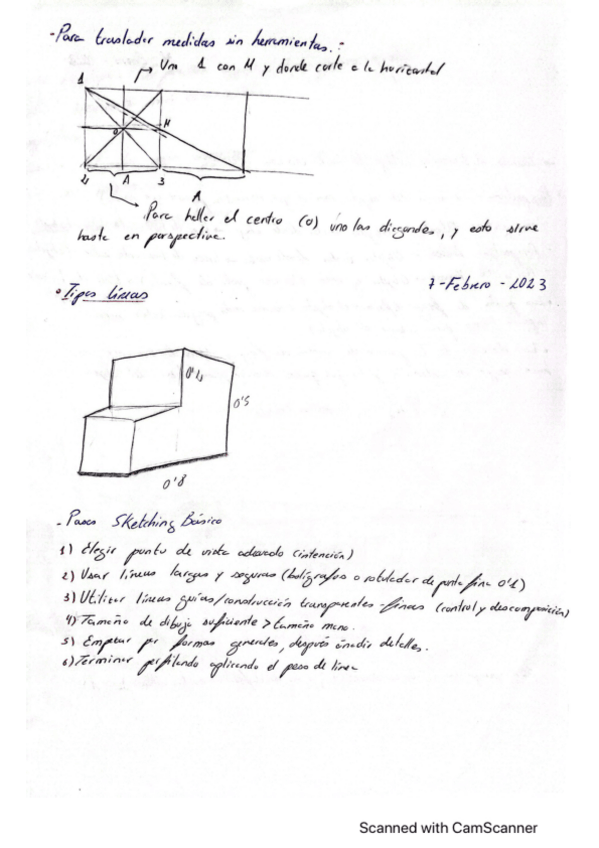 -Para trasladar medidas sin herramientas.-
Uno 1 con M y donde corte a la horizontal
1
M
O
2 A 3
A
Para haller el centro (o) uno las diagonales, y esto sirve
hasta en perspective.
7-Febrero-2023
• Tipos líneas
0'5
0'8
- Pasos Sketching Básico
1) Elegir punto de vista adecuado (intención)
2) Usar líneas largas y seguras (bolígrafos o rotulador de punta fina 0'1)
3) Utilizar líneas guías/construcción transparentes-finas (control y descomposición)
4) Tamaño de dibujo suficiente > tamaño mano.
5) Empezar por formas generales, después añadir detalles.
6) Terminar perfilando aplicando el peso de línea
Scanned with CamScanner